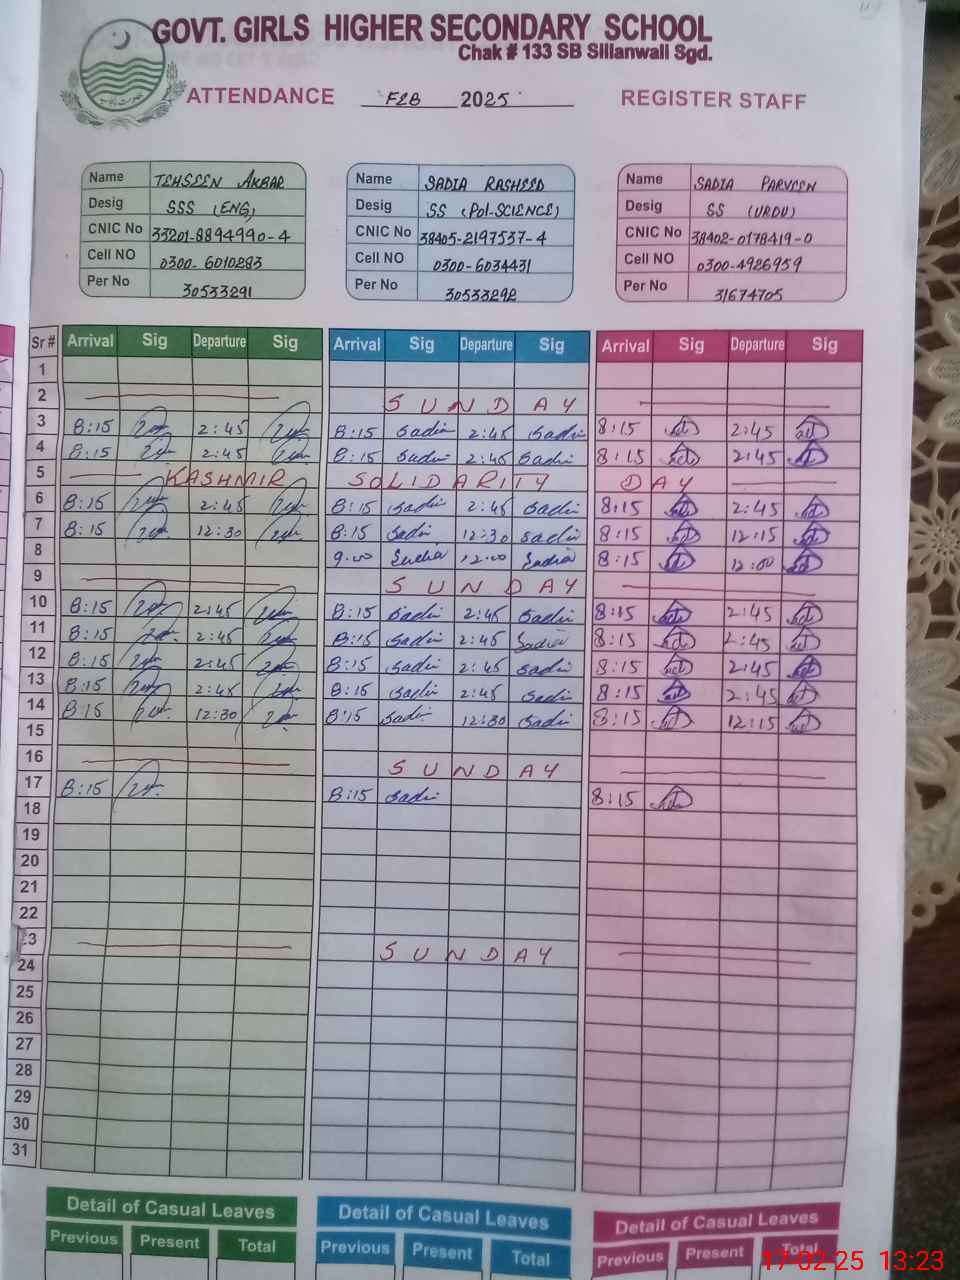 GOVT. GIRLS HIGHER SECONDARY SCHOOL
Chak # 133 SB Sillanwali Sgd.
ATTENDANCE FEB 2025 REGISTER STAFF
Name TEHSEEN AKBAR Name SADIA RASHEED Name SADIA PARVEEN
Desig SSS (ENG) Desig SS (Pol-SCIENCE) Desig SS (URDU)
CNIC No 33201-8894990-4 CNIC No 38405-2197537-4 CNIC No 38402-0178419-0
Cell NO 0300-6010283 Cell NO 0300-6034431 Cell NO 0300-4926959
Per No 30533291 Per No 30533292 Per No 31674705
Sr # Arrival Sig Departure Sig Arrival Sig Departure Sig Arrival Sig Departure Sig
1
2 SUNDAY
3 8:15 2:45 8:15 Sadia 2:45 Sadia 8:15 2:45
4 8:15 2:45 8:15 Sadia 2:45 Sadia 8:15 2:45
5 KASHMIR SOLIDARITY DAY
6 8:15 2:45 8:15 Sadia 2:45 Sadia 8:15 2:45
7 8:15 12:30 8:15 Sadia 12:30 Sadia 8:15 12:15
8 9:00 Sadia 12:00 Sadia 8:15 12:00
9 SUNDAY
10 8:15 2:45 8:15 Sadia 2:45 Sadia 8:15 2:45
11 8:15 2:45 8:15 Sadia 2:45 Sadia 8:15 2:45
12 8:15 2:45 8:15 Sadia 2:45 Sadia 8:15 2:45
13 8:15 2:45 8:15 Sadia 2:45 Sadia 8:15 2:45
14 8:15 12:30 8:15 Sadia 12:30 Sadia 8:15 12:15
15
16 SUNDAY
17 8:15 8:15 Sadia 8:15
18
19
20
21
22
23 SUNDAY
24
25
26
27
28
29
30
31
Detail of Casual Leaves Detail of Casual Leaves Detail of Casual Leaves
Previous Present Total Previous Present Total Previous Present Total
17-02-25 13:23